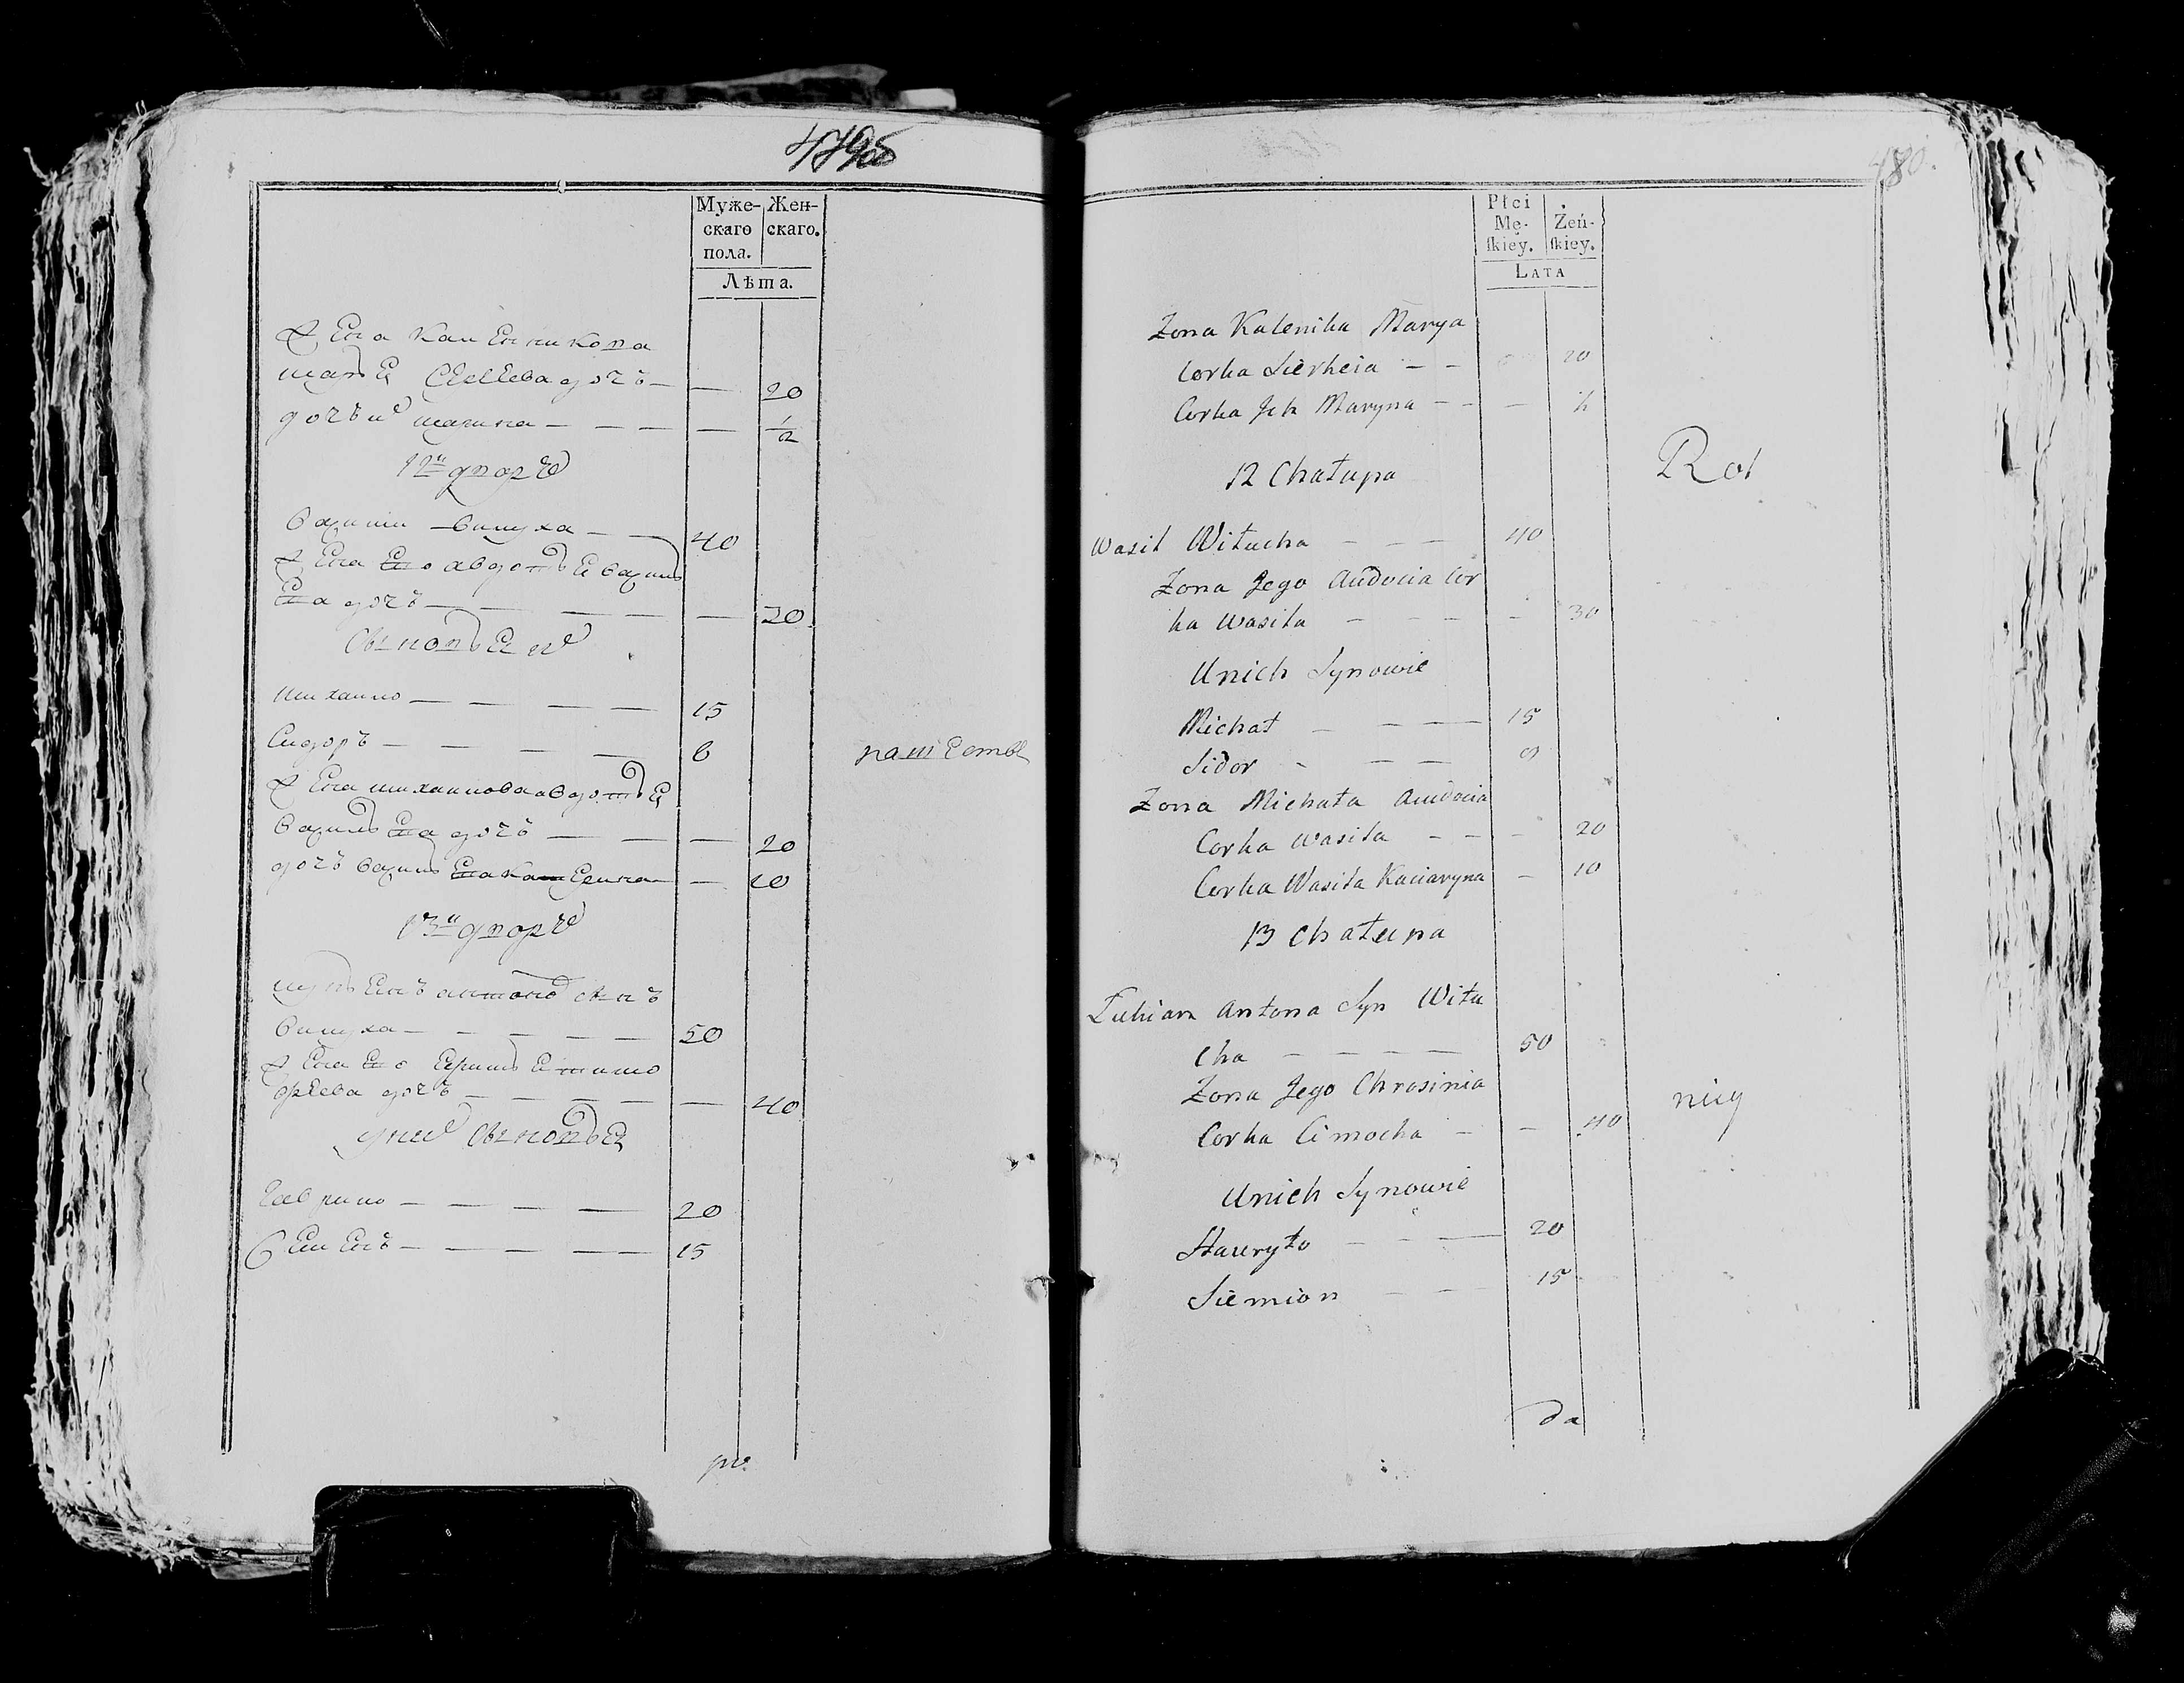 479об
Муже-
скаго
пола.
Жен-
скаго.
Лѣта.
жена каленикова
марья Сергеева дочъ — — 20
дочъ их марина — — — — 1/2
12й дворъ
василь витуха — — 40
жена Его авдотья василь
Ева дочъ — — — — — 30
Сыновья их
михаило — — — — 15
Сидоръ — — — — 6
пашЕеты
жена михаилова авдотья
васильЕва дочъ — — — 20
дочъ васильЕва катЕрина — 10
13й дворъ
лукьянъ антоновъ сынъ
витуха — — — — — 50
жена Его
Еева дочъ — — — — — — 40
у них Сыновья
гаврило — — — — 20
Семенъ — — — — — 15
480.
Płci
Mę-
ſkiey.
Żeń-
ſkiey.
LATA
Zona Kalenika Marya
Corka Sierheia — — 20
Corka Ich Maryna — — — ½
12 Chałupa
Rol
Wasil Witucha — — — 40
Zona Jego Audocia Cor
ka Wasila — — — — — 30
Unich Synowie
Michał — — — 15
Sidor — — — 6
Zona Michała Audocia
Corka Wasila — — — 20
Corka Wasila Kaciaryna — 10
13 Chałupa
Łukian Antona Syn Witu
cha — — — — 50
Zona Jego Chrosinia
Corka Cimocha — — 40
nicy
Unich Synowie
Hauryło — — — 20
Siemion — — 15
da